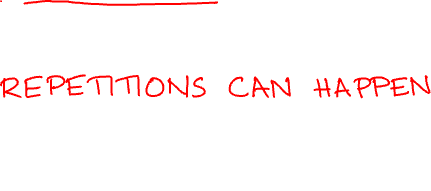 REPETITIONS CAN HAPPEN